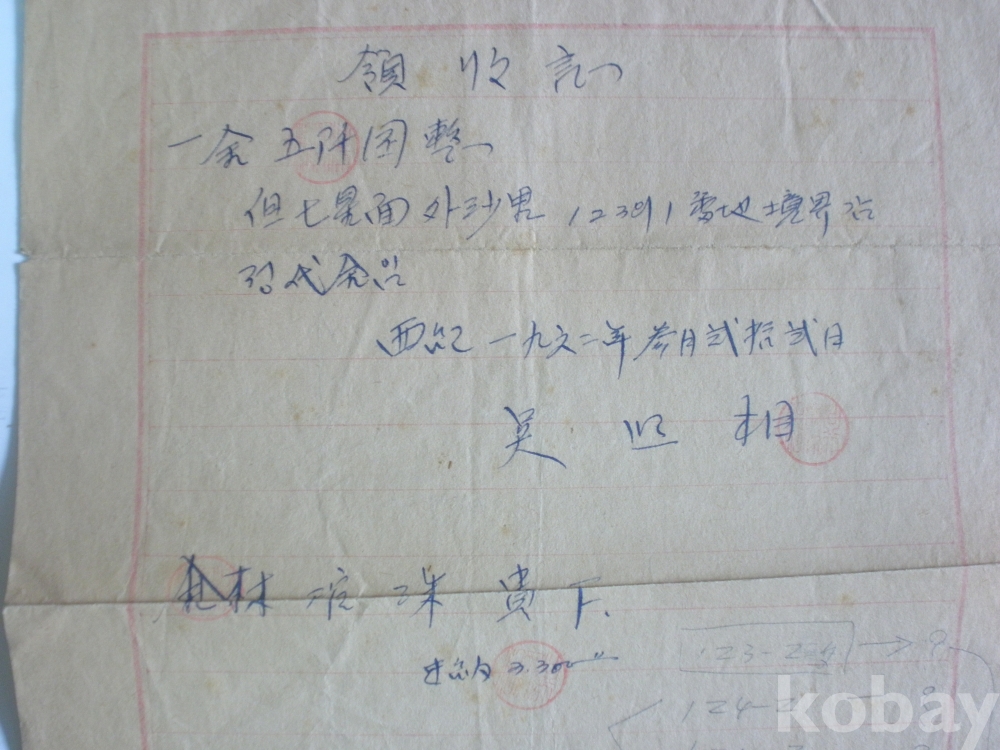 領收証
一金五阡圜整
但七星面外沙里 123의1番地 境界
代金임
西紀 一九六二年 參月 貳拾貳日
吳 相
林 珠 貴下
3.300
123-2
124-2
kobay